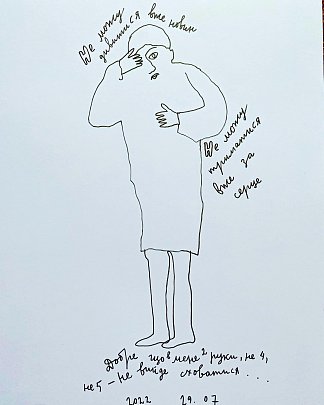 Не можу
дивитися вже новин
Не можу
триматися
вже за
серце
Добре що в мене 2 руки, не 4,
не 5 – не вийде сховатися . . .
2022 29.07